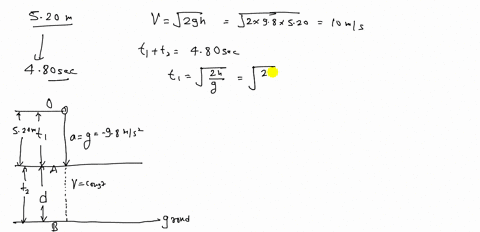 5.20 m
4.80 sec
V = √2gh = √2×9.8×5.20 = 10 m/s
t₁ + t₂ = 4.80 sec
t₁ = √2h/g = √2
O
5.20m
t₁
a = g = -9.8 m/s²
A
t₂
d
B
ground